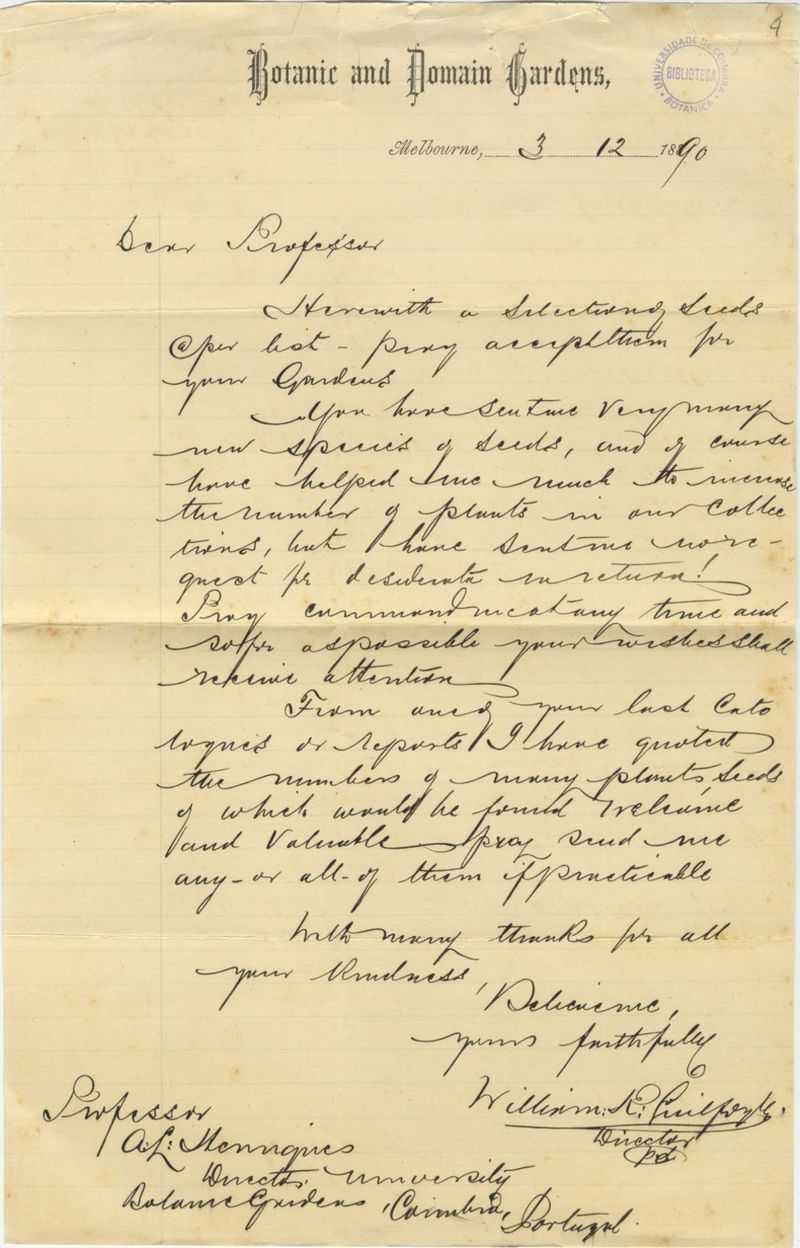 4
Botanic and Domain Gardens,
UNIVERSIDADE DE COIMBRA
BIBLIOTECA
BOTANICA
Melbourne, 3 12 1890
Dear Professor
Herewith a selection of seeds
@ per list - pray accept them for
your Gardens
You have sent me very many
new species of seeds, and of course
have helped me much to increase
the number of plants in our Collec
tions, but have sent me no re-
quest for desiderata in return!
Pray command me at any time and
so far as possible your wishes shall
receive attention
From one of your last Cata
logues or reports I have quoted
the numbers of many plants seeds
of which would be found welcome
and valuable pray send me
any - or all - of them if practicable
With many thanks for all
your kindness,
Believe me,
yours faithfully
William. R. Guilfoyle.
Director
Professor
A. L. Henriques
Director University
Botanic Gardens, Coimbra,
Portugal.